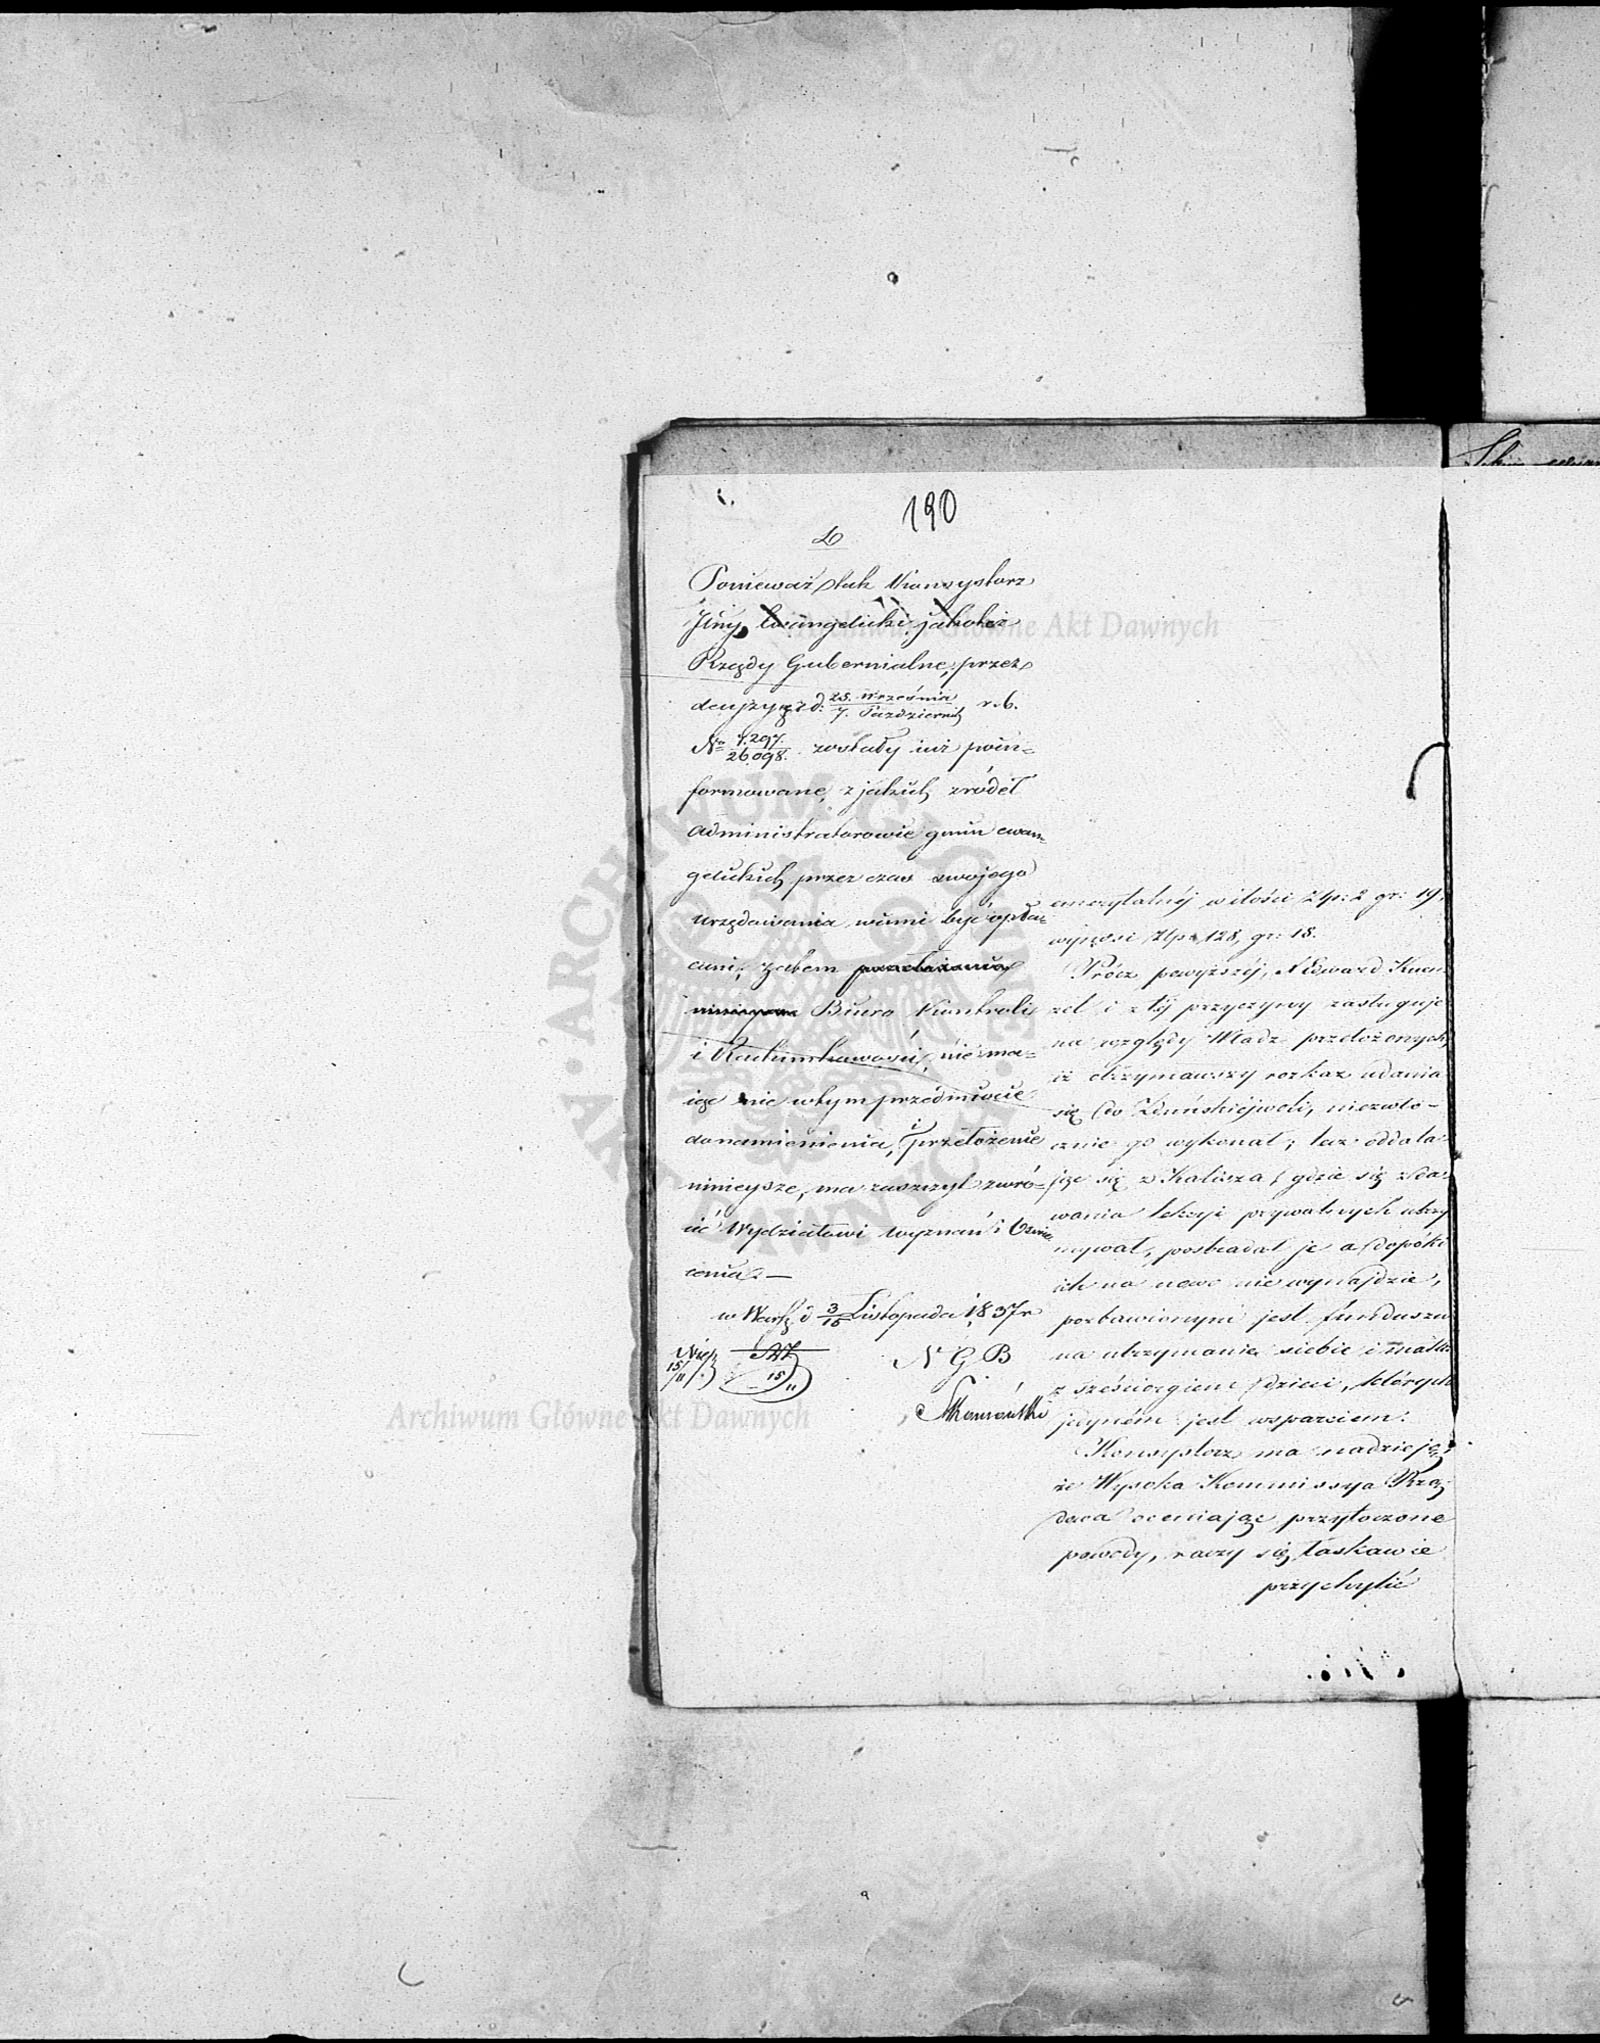 190
Ponieważ tak Konsystorz
Jlny Ewangelicki jakoteż
Rządy Gubernialne, przez
decyzyą z d. 25. Września / 7. Październik r. b.
No 7.297. / 26.098. zostały iuż poin=
formowane, z jakich źródeł
administratorowie gmin ewan=
gelickich przez czas swojego
urzędowania winni być opła=
cani; zatem
Biuro Kontroli
i Rachunkowości, nie ma=
iąc nic w tym przedmiocie
do namienienia, i przełożenie
ninieysze, ma zaszczyt zwró=
cić Wydziałowi wyznań i Oświe
cenia. —
w Warsz. d 3/15 Listopada 1837 r
15/11
15/11
N G B
emerytalnéj w ilości Złp: 2 gr: 19,
wynosi Złp. 128, gr: 18.
Prócz powyższéj, X Edward Kuen
zel i z téj przyczyny zasługuje
na względy Władz przełożonych,
iż otrzymawszy rozkaz udania
się do Zduńskiéjwoli, niezwło-
cznie go wykonał; lecz oddala
jąc się z Kalisza, gdzie się z da
wania lekcyi prywatnych utrzy
mywał, postradał je a dopóki
ich na nowo nie wynajdzie,
pozbawionym jest funduszu
na utrzymanie siebie i matki
z sześciorgiem dzieci, których
jedyném jest wsparciem.
Konsystorz ma nadzieję,
że Wysoka Kommissya Rzą
dowa oceniając przytoczone
powody, raczy się łaskawie
przychylić
Archiwum Główne Akt Dawnych
Archiwum Główne Akt Dawnych
ARCHIWUM GŁÓWNE AKT DAWNYCH